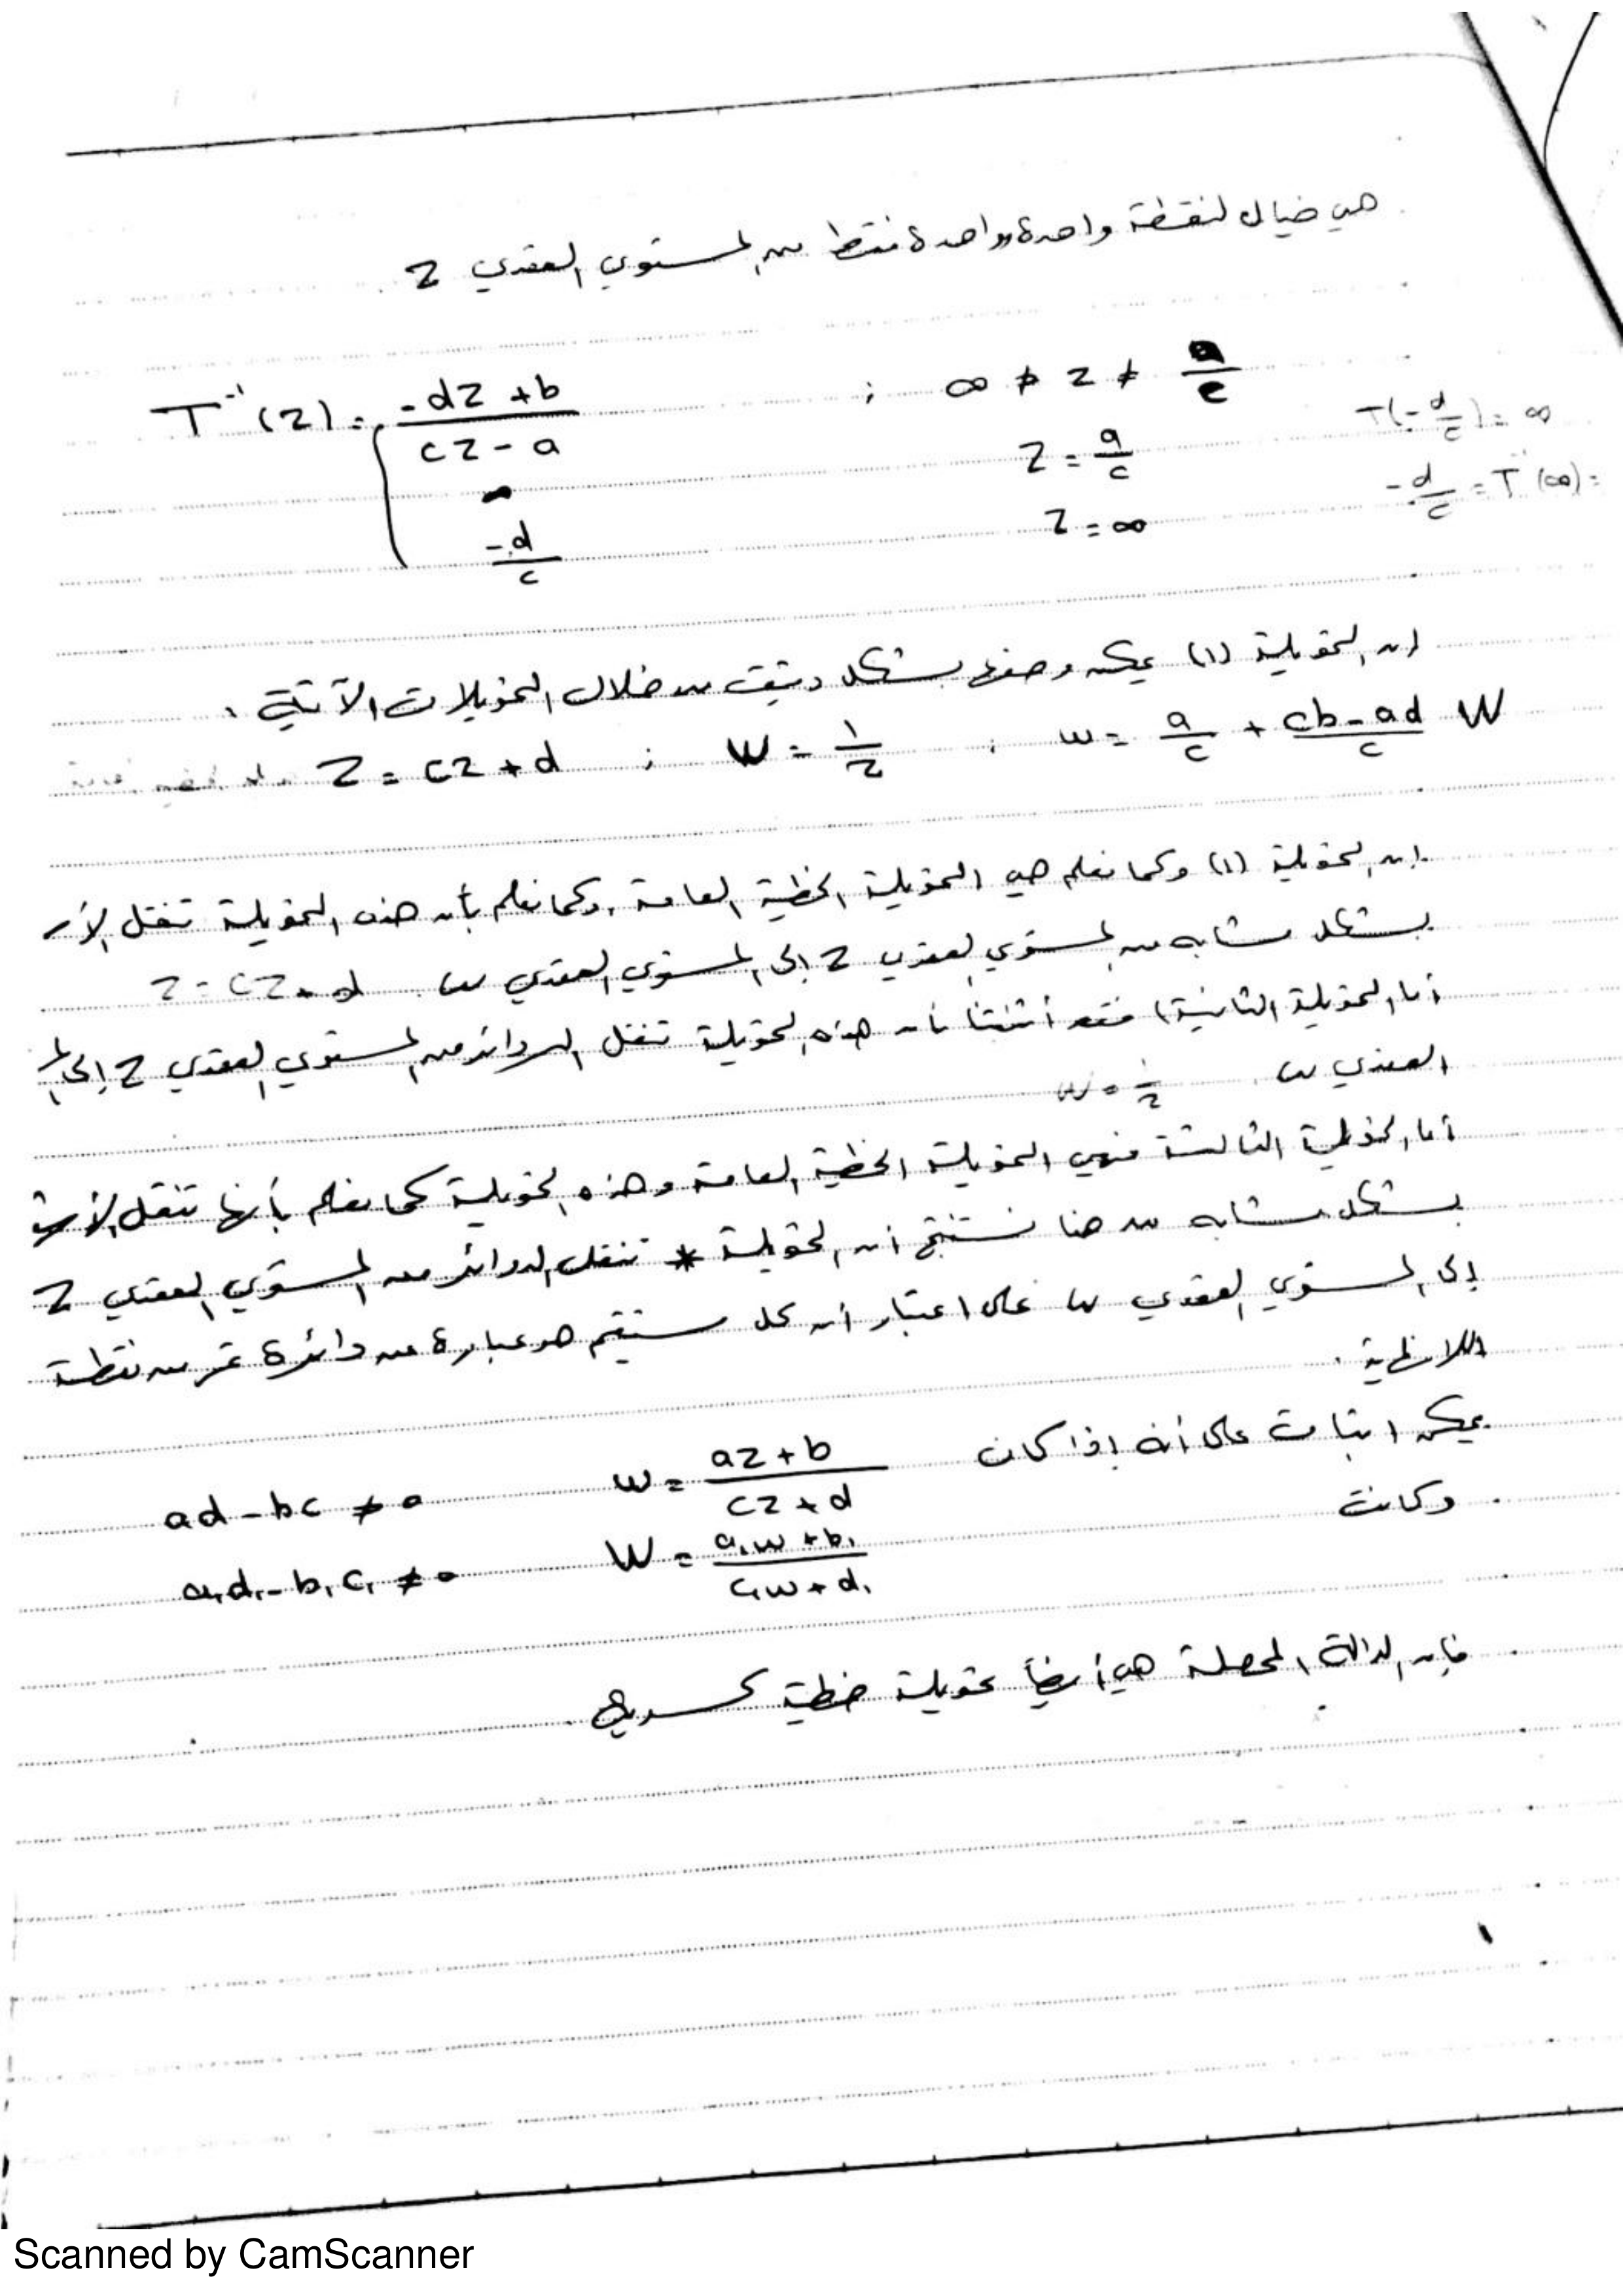 هي خيال لنقطة واحدة وواحدة فقط من المستوي العقدي z
T⁻¹(z) = { (-dz + b)/(cz - a) ; ∞ ≠ z ≠ a/c
∞ z = a/c
-d/c z = ∞
T(-d/c) = ∞
-d/c = T⁻¹(∞) =
إن التحويلة (1) يمكن وصفها بشكل دقيق من خلال التحويلات الآتية
Z = cz + d ; W = 1/z ; w = a/c + (cb - ad)/c W
إن التحويلة (1) وكما نعلم هي التحويلة الخطية العامة وكما نعلم بأن هذه التحويلة تنقل
بشكل مشابه من المستوي العقدي z إلى المستوي العقدي w z = cz + d
أما التحويلة الثانية فقد أثبتنا بأن هذه التحويلة تنقل الدوائر من المستوي العقدي z إلى
العقدي w w = 1/z
أما التحويلة الثالثة فهي التحويلة الخطية العامة وهذه التحويلة كما نعلم بأنها تنقل
بشكل مشابه من هنا نستنتج أن التحويلة * تنقل الدوائر من المستوي العقدي z
إلى المستوي العقدي w على اعتبار أن كل مستقيم هو عبارة عن دائرة تمر من نقطة
اللانهاية .
يمكن اثبات على أنه إذا كان w = (az + b)/(cz + d) ad - bc ≠ 0
وكانت W = (a₁w + b₁)/(c₁w + d₁) a₁d₁ - b₁c₁ ≠ 0
فإن الدالة المحصلة هي أيضاً تحويلة خطية كسرية .
Scanned by CamScanner